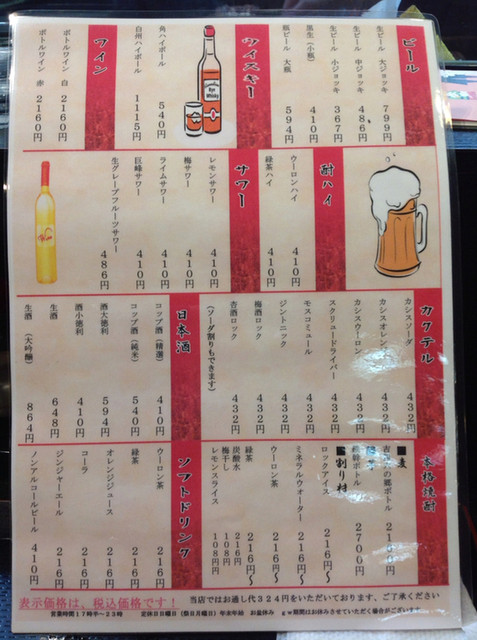 ビール
生ビール 大ジョッキ 799円
生ビール 中ジョッキ 486円
生ビール 小ジョッキ 367円
黒生(小瓶) 410円
瓶ビール 大瓶 594円
ウイスキー
Rye
Whisky
角ハイボール 540円
白州ハイボール 1115円
ワイン
ボトルワイン 白 2160円
ボトルワイン 赤 2160円
酎ハイ
ウーロンハイ 410円
緑茶ハイ 410円
サワー
レモンサワー 410円
梅サワー 410円
ライムサワー 410円
巨峰サワー 410円
生グレープフルーツサワー 486円
カクテル
カシスソーダ 432円
カシスオレンジ 432円
カシスウーロン 432円
スクリュードライバー 432円
モスコミュール 432円
ジントニック 432円
梅酒ロック 432円
杏酒ロック 432円
(ソーダ割りもできます)
日本酒
コップ酒(精選) 410円
コップ酒(純米) 540円
酒大徳利 594円
酒小徳利 410円
生酒 648円
生酒(大吟醸) 864円
本格焼酎
麦
の郷ボトル
ボトル 2700円
割り材
ロックアイス 216円~
ミネラルウォーター 216円~
ウーロン茶 216円~
緑茶 216円~
炭酸水 216円
梅干し 108円
レモンスライス 108円
ソフトドリンク
ウーロン茶 216円
緑茶 216円
オレンジジュース 216円
コーラ 216円
ジンジャーエール 216円
ノンアルコールビール 410円
当店ではお通し代324円をいただいております、ご了承ください
表示価格は、税込価格です!
営業時間17時~23時 定休日日曜日(祭日月曜日)年末年始 お盆休み gw期間はお休みさせていただく場合がございます